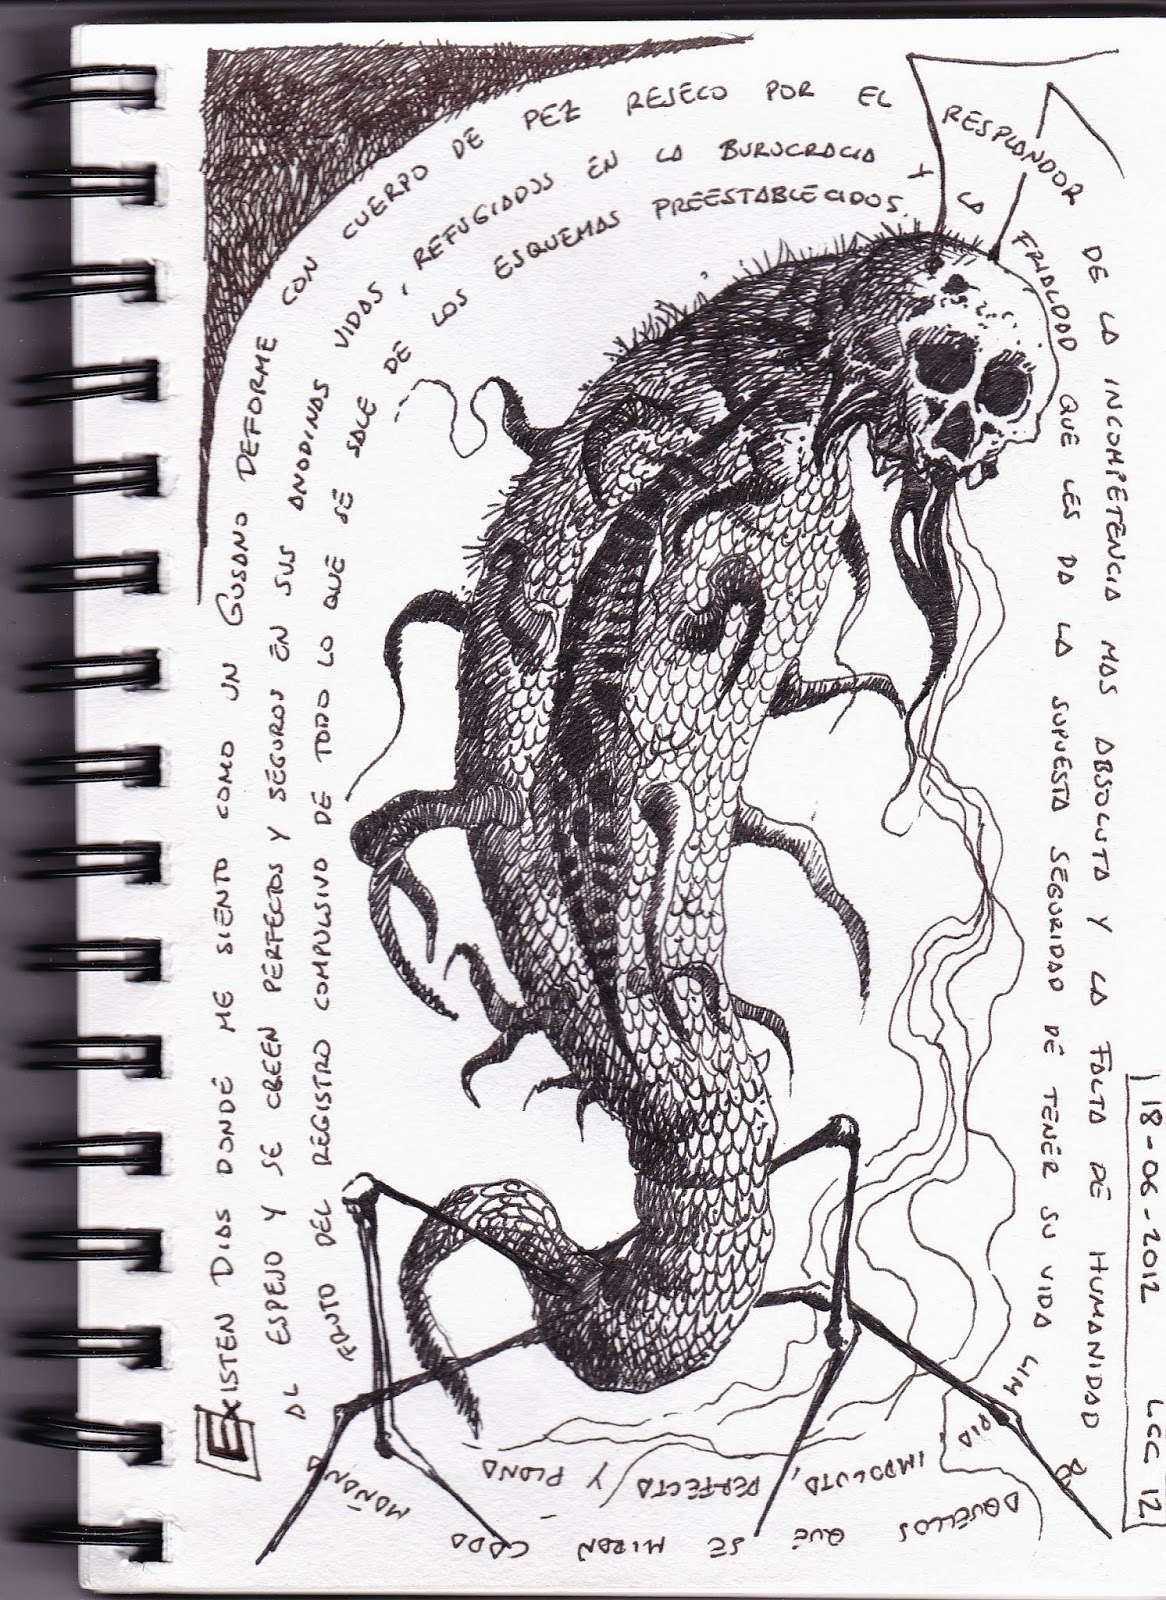 EXISTEN DIAS DONDE ME SIENTO COMO UN GUSANO DEFORME CON CUERPO DE PEZ RESECO POR EL RESPLANDOR DE LA INCOMPETENCIA MAS ABSOLUTA Y LA FALTA DE HUMANIDAD D AQUELLOS QUE SE MIRAN CADA MAÑANA
AL ESPEJO Y SE CREEN PERFECTOS Y SEGUROS EN SUS ANODINAS VIDAS, REFUGIADOS EN LA BUROCRACIA Y LA FRIALDAD QUE LES DA LA SUPUESTA SEGURIDAD DE TENER SU VIDA LIMPIA, IMPOLUTA, PERFECTA Y PLANA
FRUTO DEL REGISTRO COMPULSIVO DE TODO LO QUE SE SALE DE LOS ESQUEMAS PREESTABLECIDOS.
18-06-2012 12